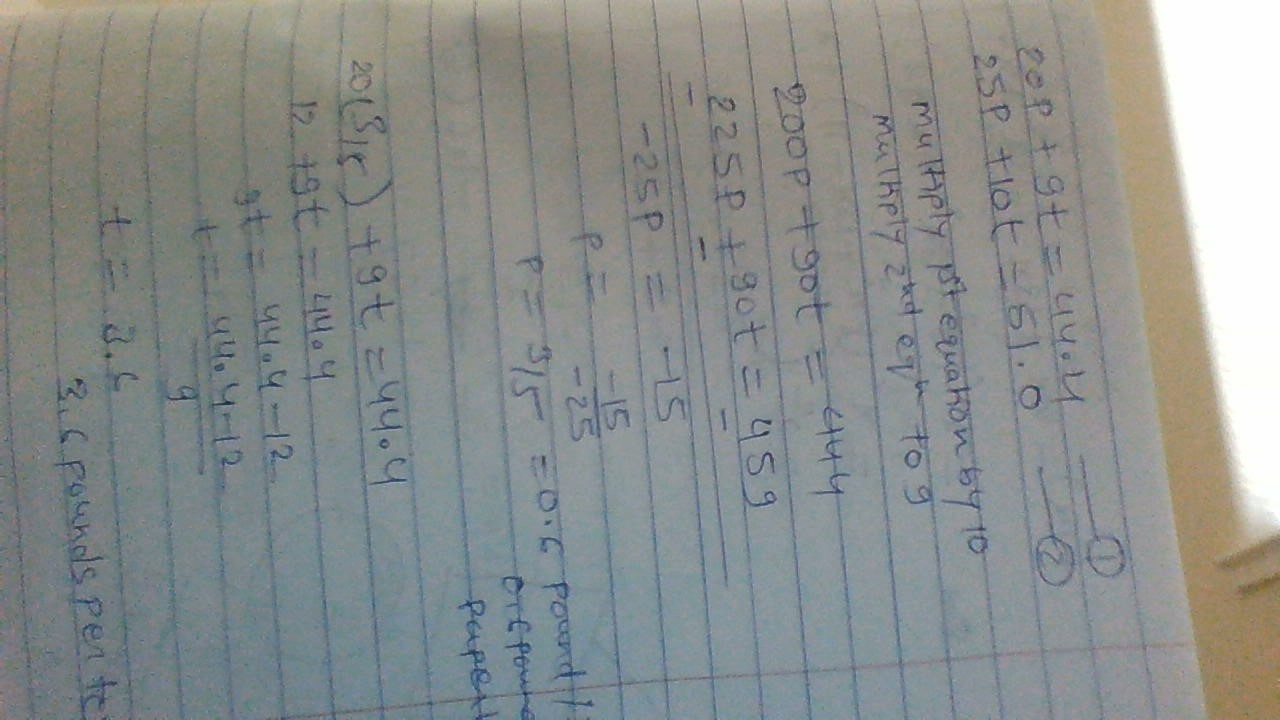 20P + 9t = 44.4 ①
25P + 10t = 51.0 ②
multiply 1st equation by 10
multiply 2nd eqn to 9
200P + 90t = 444
225P + 90t = 459
- - -
-25P = -15
P = -15/-25
P = 3/5 = 0.6 pound /
20(3/5) + 9t = 44.4
12 + 9t = 44.4
9t = 44.4 - 12
t = 44.4-12/9
t = 3.6
3.6 pounds per